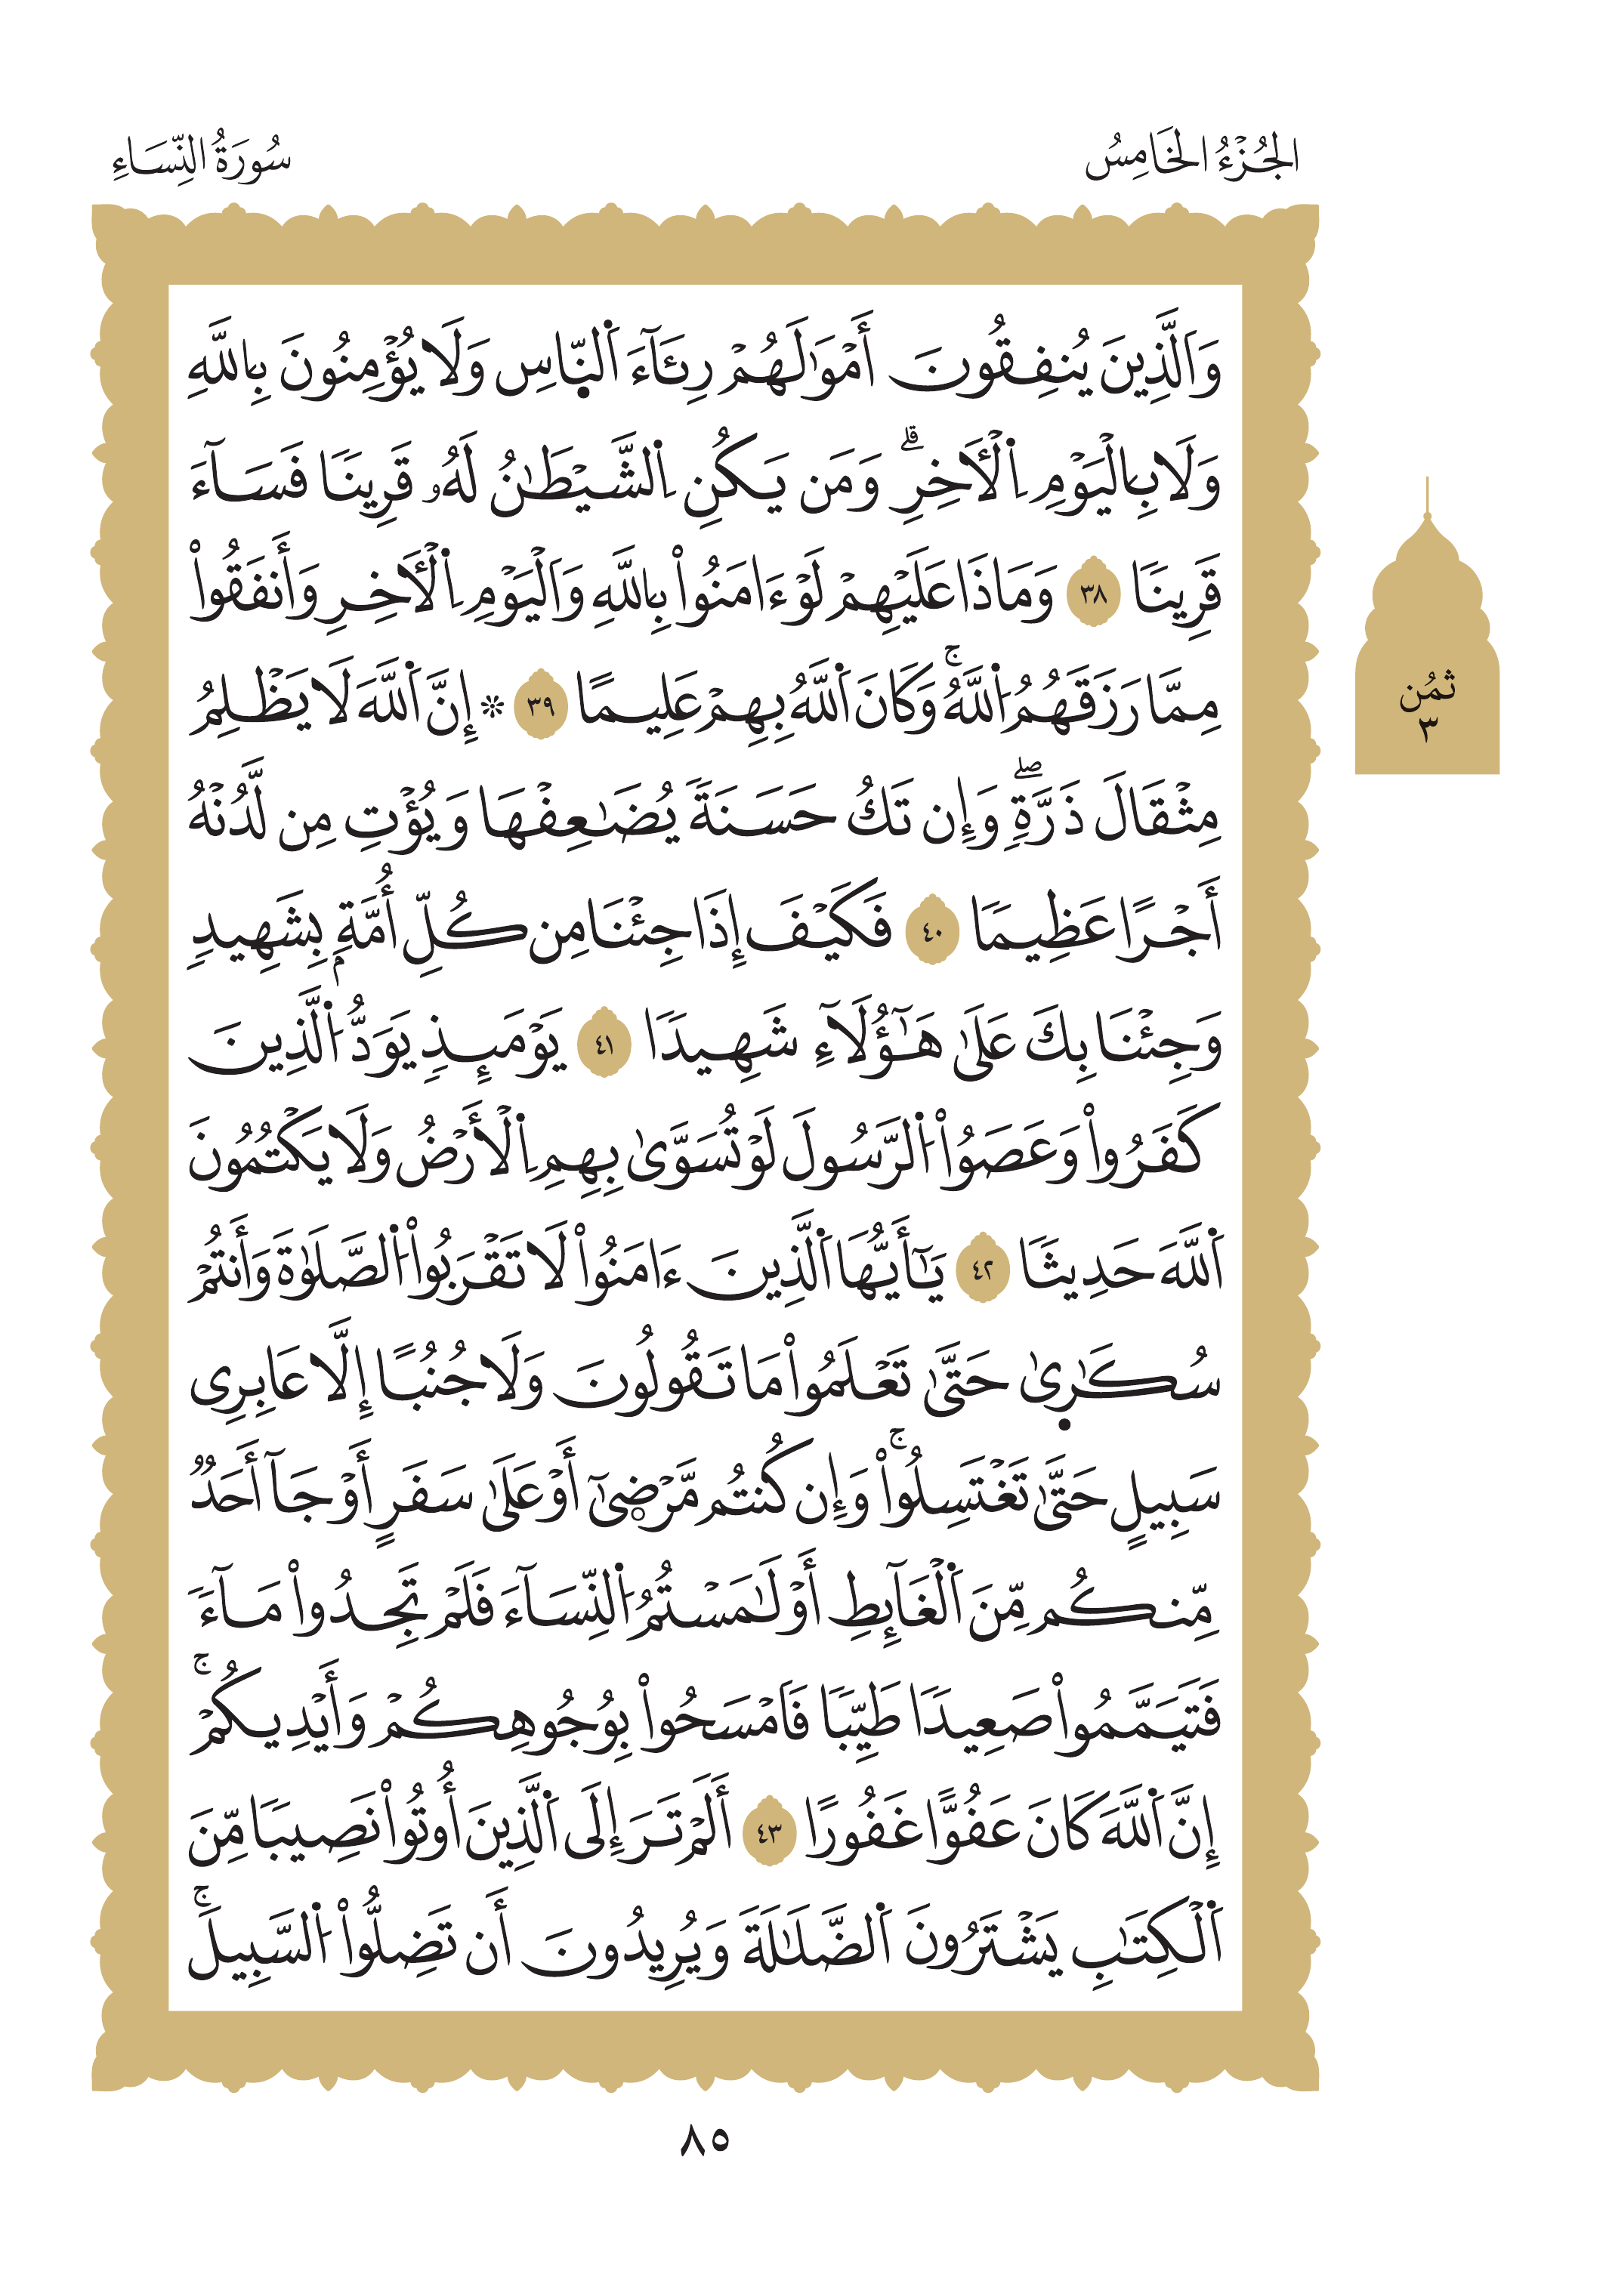 الجُزْءُ الخَامِسُ
سُورَةُ النِّسَاءِ
وَٱلَّذِينَ يُنفِقُونَ أَمْوَٰلَهُمْ رِئَآءَ ٱلنَّاسِ وَلَا يُؤْمِنُونَ بِٱللَّهِ
وَلَا بِٱلْيَوْمِ ٱلْأَخِرِ ۗ وَمَن يَكُنِ ٱلشَّيْطَٰنُ لَهُۥ قَرِينًا فَسَآءَ
قَرِينًا ٣٨ وَمَاذَا عَلَيْهِمْ لَوْ ءَامَنُوا۟ بِٱللَّهِ وَٱلْيَوْمِ ٱلْأَخِرِ وَأَنفَقُوا۟
مِمَّا رَزَقَهُمُ ٱللَّهُ ۚ وَكَانَ ٱللَّهُ بِهِمْ عَلِيمًا ٣٩ ۞ إِنَّ ٱللَّهَ لَا يَظْلِمُ
مِثْقَالَ ذَرَّةٍ ۖ وَإِن تَكُ حَسَنَةً يُضَٰعِفْهَا وَيُؤْتِ مِن لَّدُنْهُ
أَجْرًا عَظِيمًا ٤٠ فَكَيْفَ إِذَا جِئْنَا مِن كُلِّ أُمَّةِۭ بِشَهِيدٍ
وَجِئْنَا بِكَ عَلَىٰ هَٰٓؤُلَآءِ شَهِيدًا ٤١ يَوْمَئِذٍ يَوَدُّ ٱلَّذِينَ
كَفَرُوا۟ وَعَصَوُا۟ ٱلرَّسُولَ لَوْ تُسَوَّىٰ بِهِمِ ٱلْأَرْضُ وَلَا يَكْتُمُونَ
ٱللَّهَ حَدِيثًا ٤٢ يَٰٓأَيُّهَا ٱلَّذِينَ ءَامَنُوا۟ لَا تَقْرَبُوا۟ ٱلصَّلَوٰةَ وَأَنتُمْ
سُكَٰرِىٰ حَتَّىٰ تَعْلَمُوا۟ مَا تَقُولُونَ وَلَا جُنُبًا إِلَّا عَابِرِى
سَبِيلٍ حَتَّىٰ تَغْتَسِلُوا۟ ۚ وَإِن كُنتُم مَّرْضِىٰٓ أَوْ عَلَىٰ سَفَرٍ أَوْ جَآ أَحَدٌ
مِّنكُم مِّنَ ٱلْغَآئِطِ أَوْ لَٰمَسْتُمُ ٱلنِّسَآءَ فَلَمْ تَجِدُوا۟ مَآءً
فَتَيَمَّمُوا۟ صَعِيدًا طَيِّبًا فَٱمْسَحُوا۟ بِوُجُوهِكُمْ وَأَيْدِيكُمْ ۚ
إِنَّ ٱللَّهَ كَانَ عَفُوًّا غَفُورًا ٤٣ أَلَمْ تَرَ إِلَى ٱلَّذِينَ أُوتُوا۟ نَصِيبًا مِّنَ
ٱلْكِتَٰبِ يَشْتَرُونَ ٱلضَّلَٰلَةَ وَيُرِيدُونَ أَن تَضِلُّوا۟ ٱلسَّبِيلَ ۚ
ثُمُن
٣
٨٥